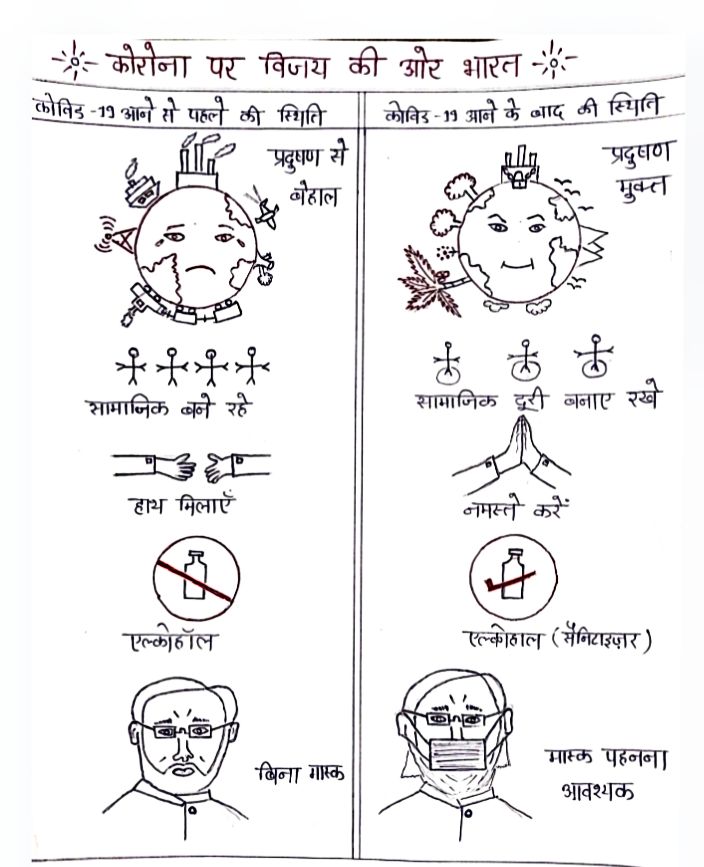 कोरोना पर विजय की ओर भारत
कोविड -19 आने से पहले की स्थिति
कोविड -19 आने के बाद की स्थिति
प्रदुषण से
बेहाल
प्रदुषण
मुक्त
सामाजिक बने रहे
सामाजिक दूरी बनाए रखे
हाथ मिलाएँ
नमस्ते करें
एल्कोहॉल
एल्कोहाल (सैनिटाइज़र)
बिना मास्क
मास्क पहनना
आवश्यक